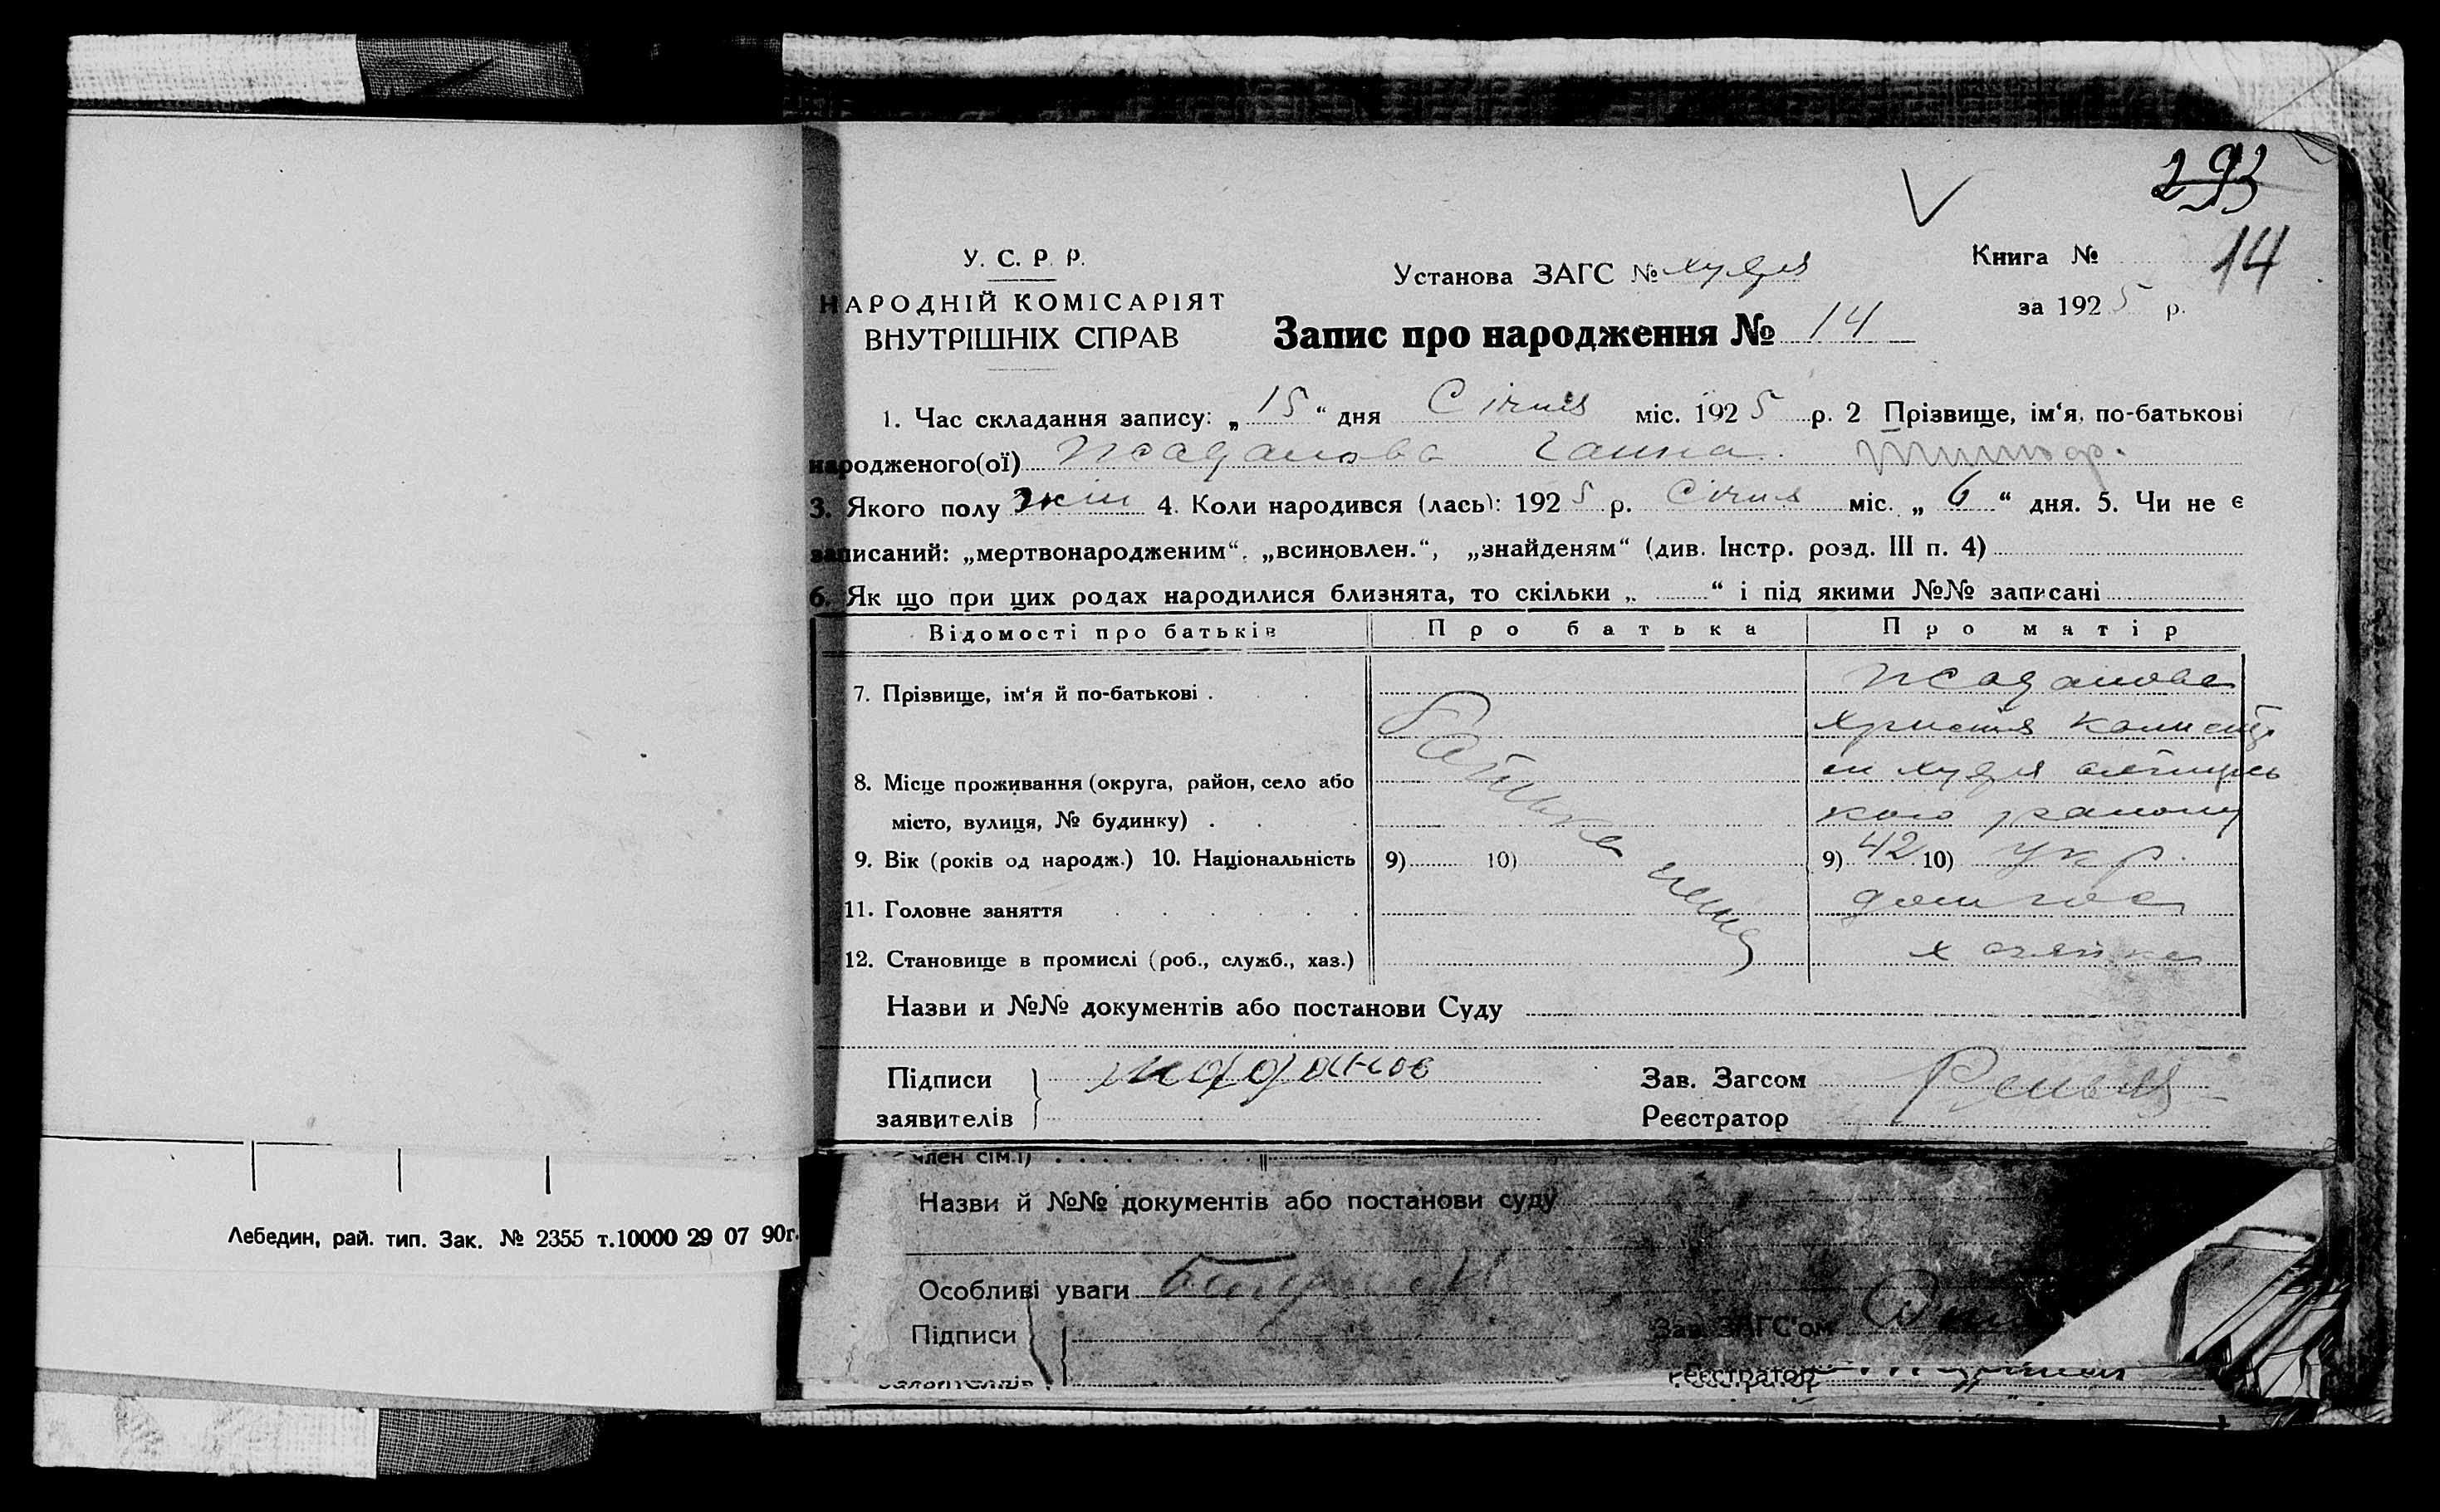 293
У. С. Р. Р.
НАРОДНІЙ КОМІСАРІЯТ
ВНУТРІШНІХ СПРАВ
Установа ЗАГС №
Книга № 14
за 1925 р.
Запис про народження № 14
1. Час складання запису: „15“ дня Січня міс. 1925 р. 2 Прізвище, ім‘я, по-батькові
народженого(ої) Жаданова Ганна
3. Якого полу жін 4. Коли народився (лась): 1925 р. Січня міс. „6“ дня. 5. Чи не є
записаний: „мертвонародженим“, „всиновлен.“, „знайденям“ (див. Інстр. розд. III п. 4)
6. Як що при цих родах народилися близнята, то скільки „ “ і під якими №№ записані
Відомості про батьків Про батька Про матір
7. Прізвище, ім‘я й по-батькові . Жаданова
Христя
8. Місце проживання (округа, район, село або
місто, вулиця, № будинку) . кого району
9. Вік (років од народж.) 10. Національність 9) 10) 9) 42 10) укр.
Батька нема
11. Головне заняття
12. Становище в промислі (роб., служб., хаз.) хозяйка
Назви и №№ документів або постанови Суду
Підписи
заявителів
Зав. Загсом
Реєстратор
член сім.)
Назви й №№ документів або постанови суду
Особливі уваги
Підписи
Зав. ЗАГС'ом
Реєстратор
Лебедин, рай. тип. Зак. № 2355 т.10000 29 07 90г.